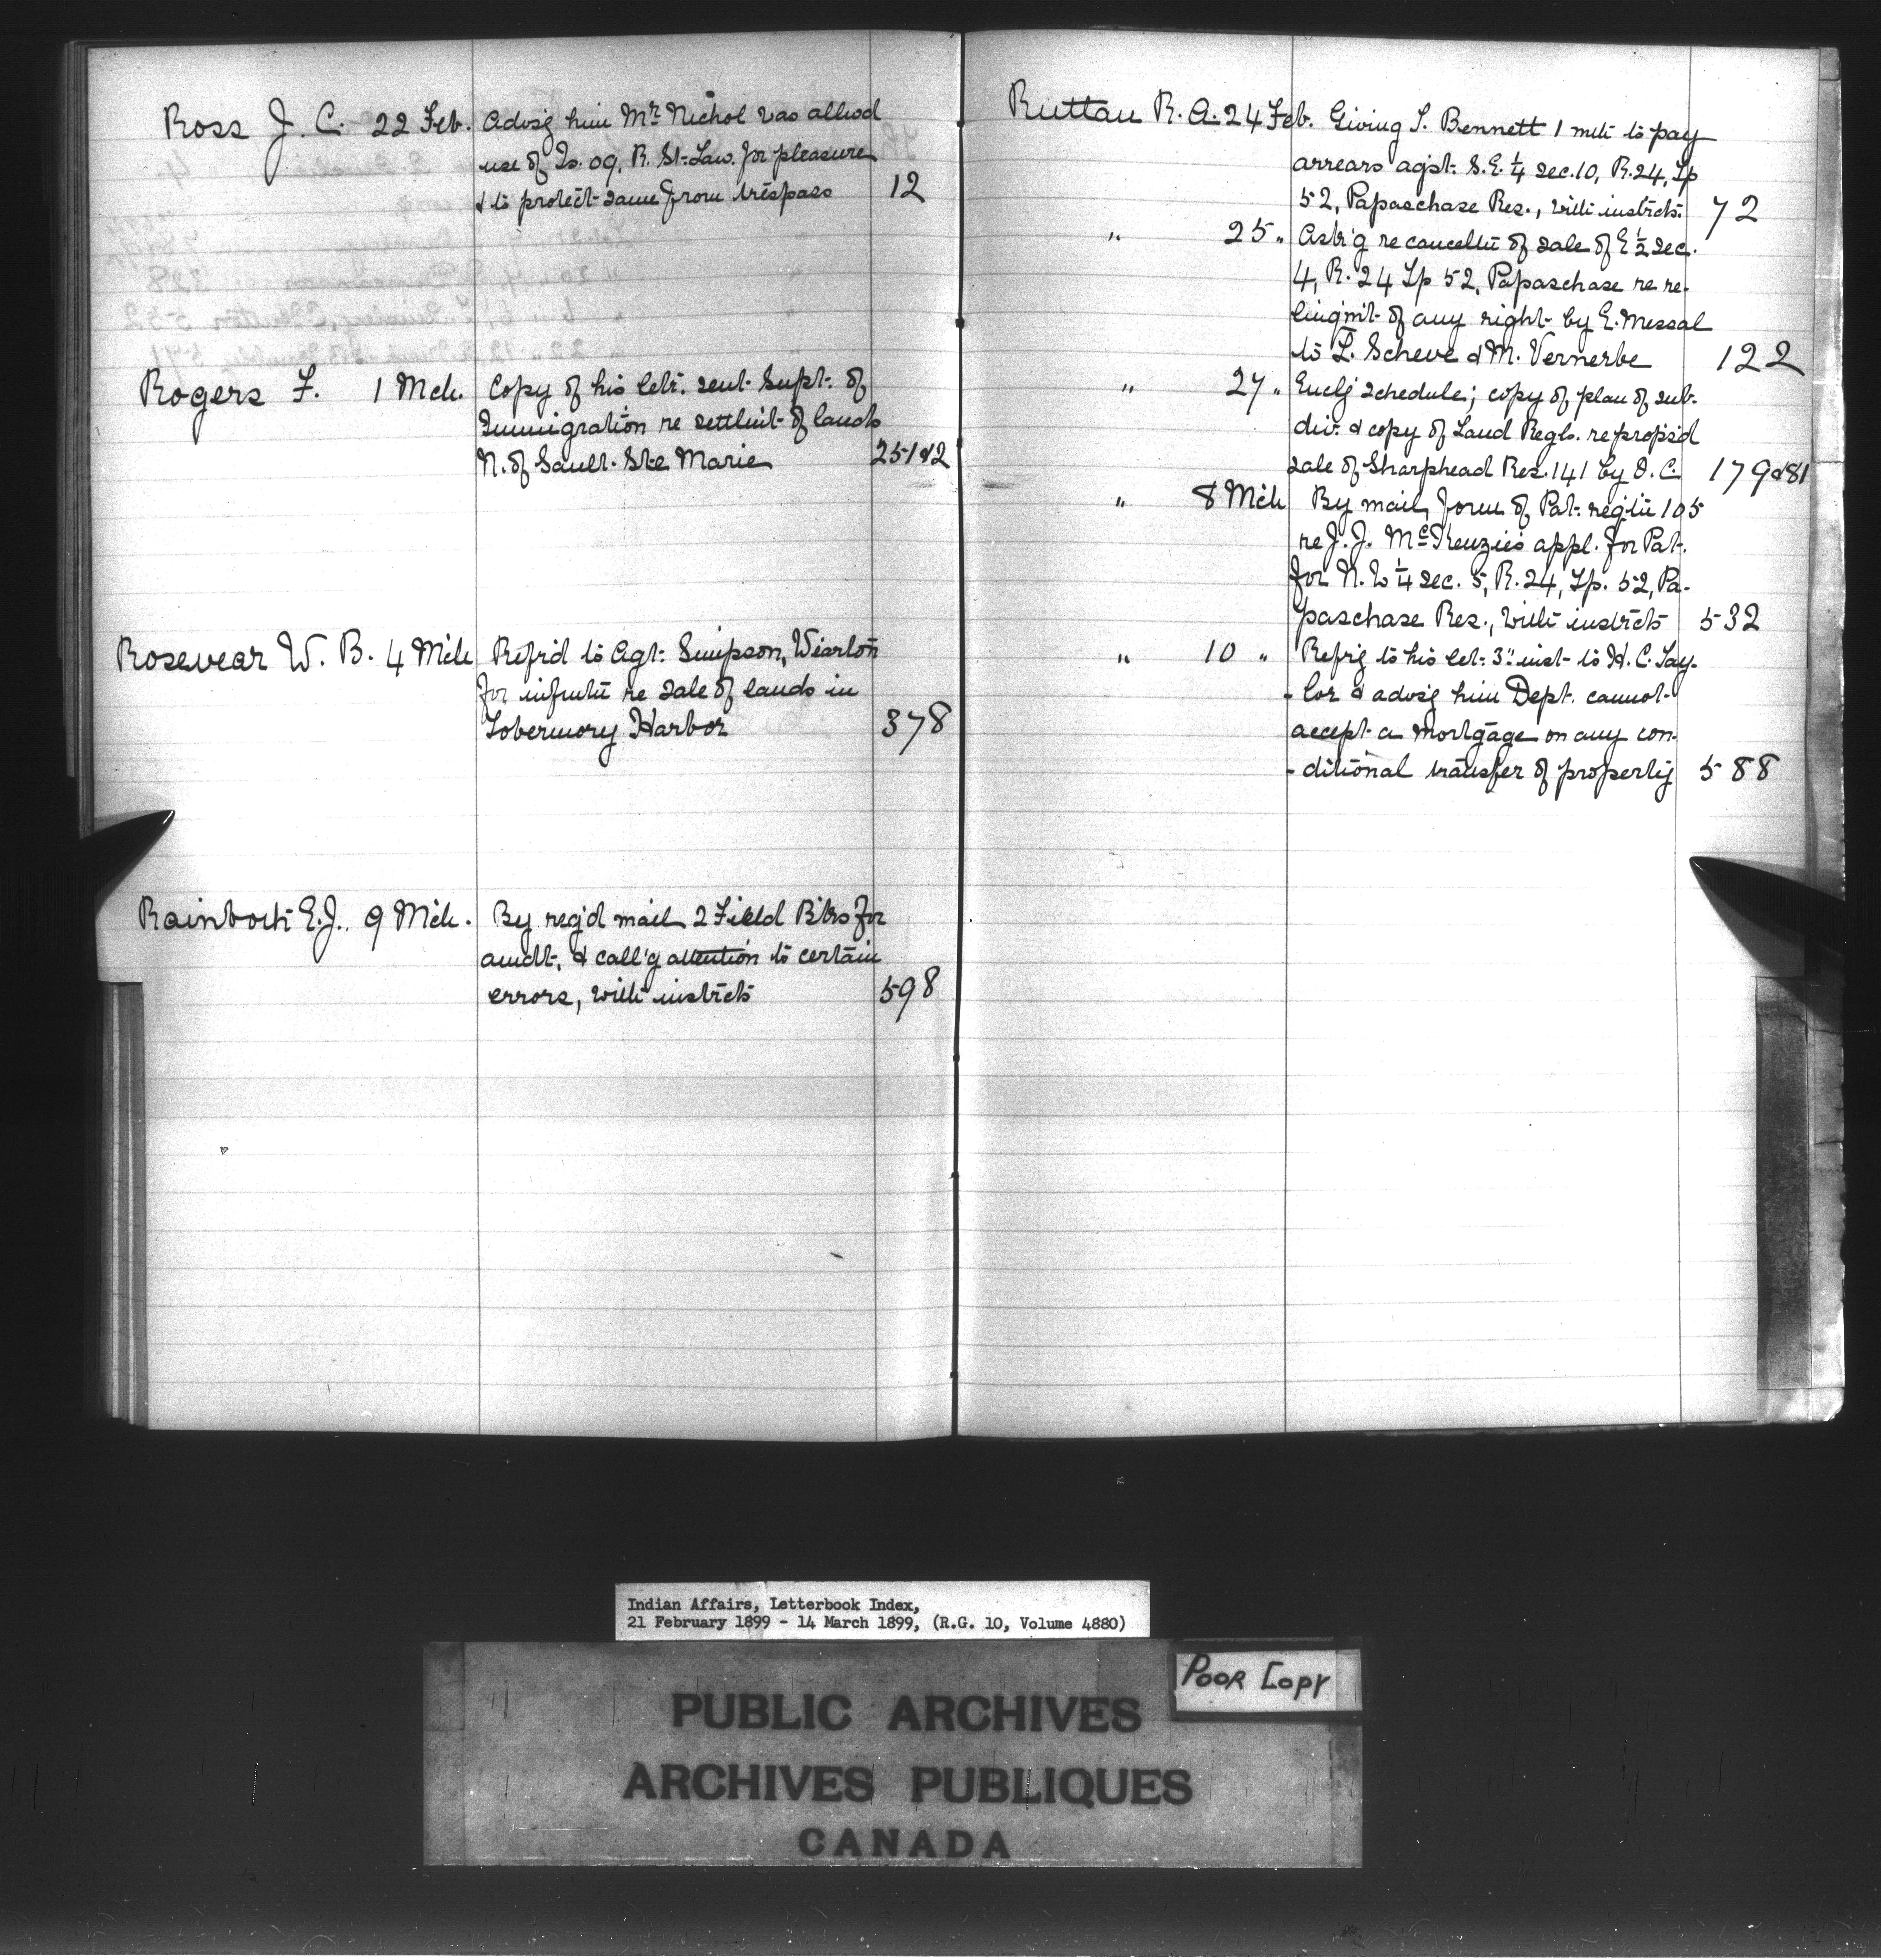 Ross J. C. 22 Feb. Advis'g him Mr. Nichol was allw'd
use of Is. 09, R. St. Law. for pleasure
& to protect same from trespass 12
Rogers F. 1 Mch. Copy of his letr. sent Supt. of
Immigration re settlmt of lands
N. of Sault Ste Marie 251&2
Rosevear W. B. 4 Mch Refr'd to Agt. Simpson, Wiarton
for infmtn re sale of lands in
Tobermory Harbor 378
Rainboth E.J. 9 Mch. By reg'd mail 2 Field Bks for
amdt, & call'g attention to certain
errors, with instrcts 598
Ruttan R. A. 24 Feb. Giving S. Bennett 1 mth to pay
arrears agst. S.E. 1/4 sec. 10, R. 24, Tp
52, Papaschase Res., with instrcts. 72
" 25 " Ask'g re canceltn of sale of E 1/2 sec.
4, R. 24 Tp 52, Papaschase re re-
linqm't of any right by E. Messal
to L. Scheve & M. Vernerbe 122
" 27 " Encl'g schedule; copy of plan of sub.
div. & copy of Land Regls. re propos'd
sale of Sharphead Res. 141 by O. C. 179&81
" 8 Mch By mail, form of Pat. regltn 105
re J. J. McKenzie's appl. for Pat.
for N. W 1/4 sec. 5, R. 24, Tp. 52, Pa-
paschase Res., with instrcts 532
" 10 " Refr'g to his let. 3" inst to H. C. Tay-
-lor & advis'g him Dept. cannot
accept a mortgage on any con-
-ditional transfer of property 588
Indian Affairs, Letterbook Index,
21 February 1899 - 14 March 1899, (R.G. 10, Volume 4880)
POOR COPY
PUBLIC ARCHIVES
ARCHIVES PUBLIQUES
CANADA